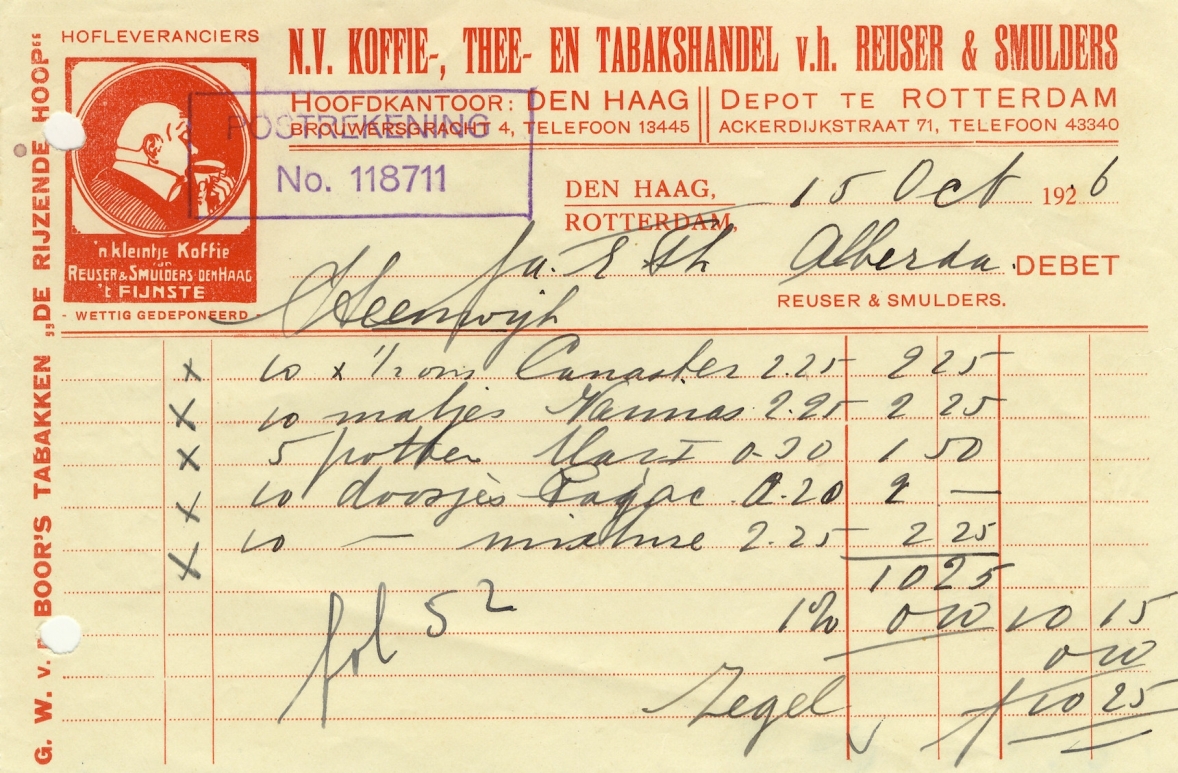 HOFLEVERANCIERS
N.V. KOFFIE-, THEE- EN TABAKSHANDEL v.h. REUSER & SMULDERS
HOOFDKANTOOR: DEN HAAG
BROUWERSGRACHT 4, TELEFOON 13445
DEPOT TE ROTTERDAM
ACKERDIJKSTRAAT 71, TELEFOON 43340
POSTREKENING
No. 118711
DEN HAAG, 15 Oct 1926
ROTTERDAM,
Fa. E Th Alberda DEBET
REUSER & SMULDERS.
Steenwijk
'n kleintje Koffie
REUSER & SMULDERS DEN HAAG
't FIJNSTE
- WETTIG GEDEPONEERD -
G. W. v. BOOR'S TABAKKEN „DE RIJZENDE HOOP“
x 10 x 1/2 ons Canaster 2.25 2 25
x 10 matjes 2.25 2 25
x 5 potten 0.30 1 50
x 10 doosjes 0.20 2 —
x 10 — mixture 2.25 2 25
10 25
fol 52 1% 0 10 10 15
0 10
Zegel f 10 25